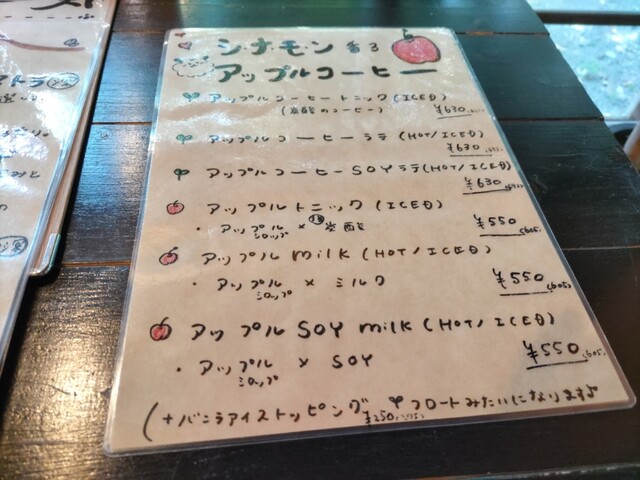 シナモン香る
アップルコーヒー
アップルコーヒートニック(ICED)
(炭酸のコーヒー) ¥630
アップルコーヒーラテ(HOT/ICED)
¥630
アップルコーヒーSOYラテ(HOT/ICED)
¥630
アップルトニック(ICED)
・アップルシロップ × 炭酸 ¥550(605)
アップル milk (HOT/ICED)
・アップルシロップ × ミルク ¥550(605)
アップル SOY milk (HOT/ICED)
・アップルシロップ × SOY ¥550(605)
(+バニラアイストッピング フロートみたいになりますよ
¥250(275)